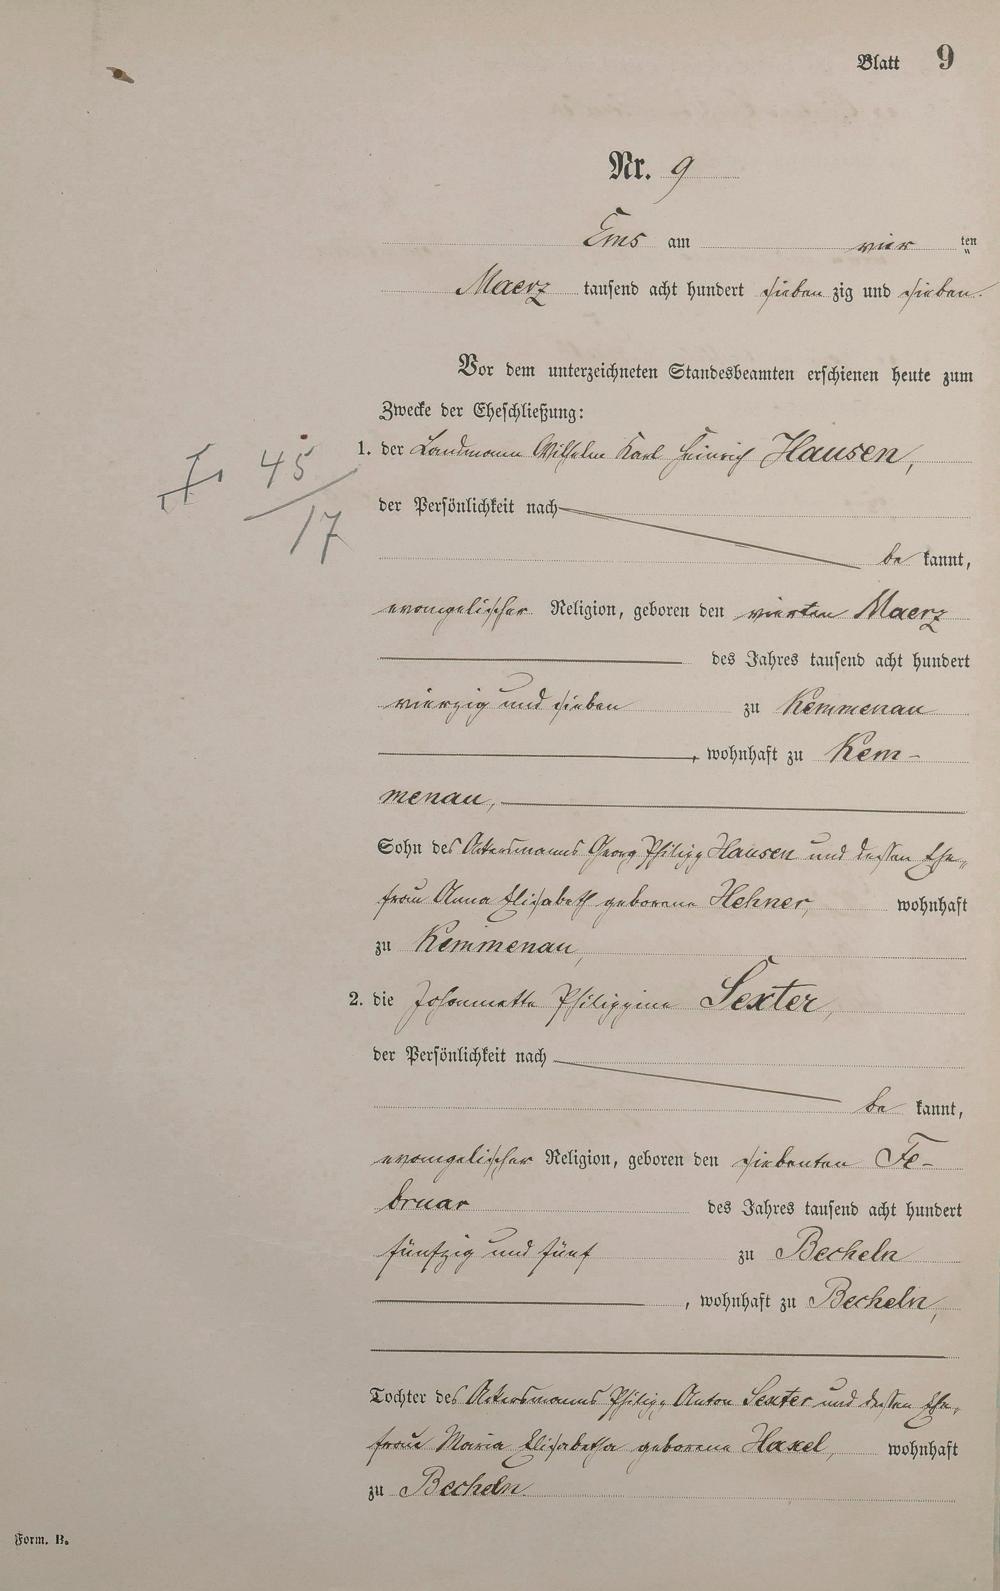 Blatt 9
Nr. 9
Ems am vier ten
Maerz tausend acht hundert sieben zig und sieben.
Vor dem unterzeichneten Standesbeamten erschienen heute zum
Zwecke der Eheschließung:
1. der Landmann Wilhelm Karl Heinrich Hausen,
45
17
der Persönlichkeit nach
be kannt,
evangelischer Religion, geboren den vierten Maerz
des Jahres tausend acht hundert
vierzig und sieben zu Kemmenau
, wohnhaft zu Kem-
menau,
Sohn des Ackersmanns Georg Philipp Hausen und dessen Ehe-
frau Anna Elisabeth geborene Hehner, wohnhaft
zu Kemmenau,
2. die Johannette Philippine Sexter,
der Persönlichkeit nach
be kannt,
evangelischer Religion, geboren den siebenten Fe-
bruar des Jahres tausend acht hundert
fünfzig und fünf zu Becheln
, wohnhaft zu Becheln,
Tochter des Ackersmanns Philipp Anton Sexter und dessen Ehe-
frau Maria Elisabetha geborene Haxel, wohnhaft
zu Becheln.
Form. B.